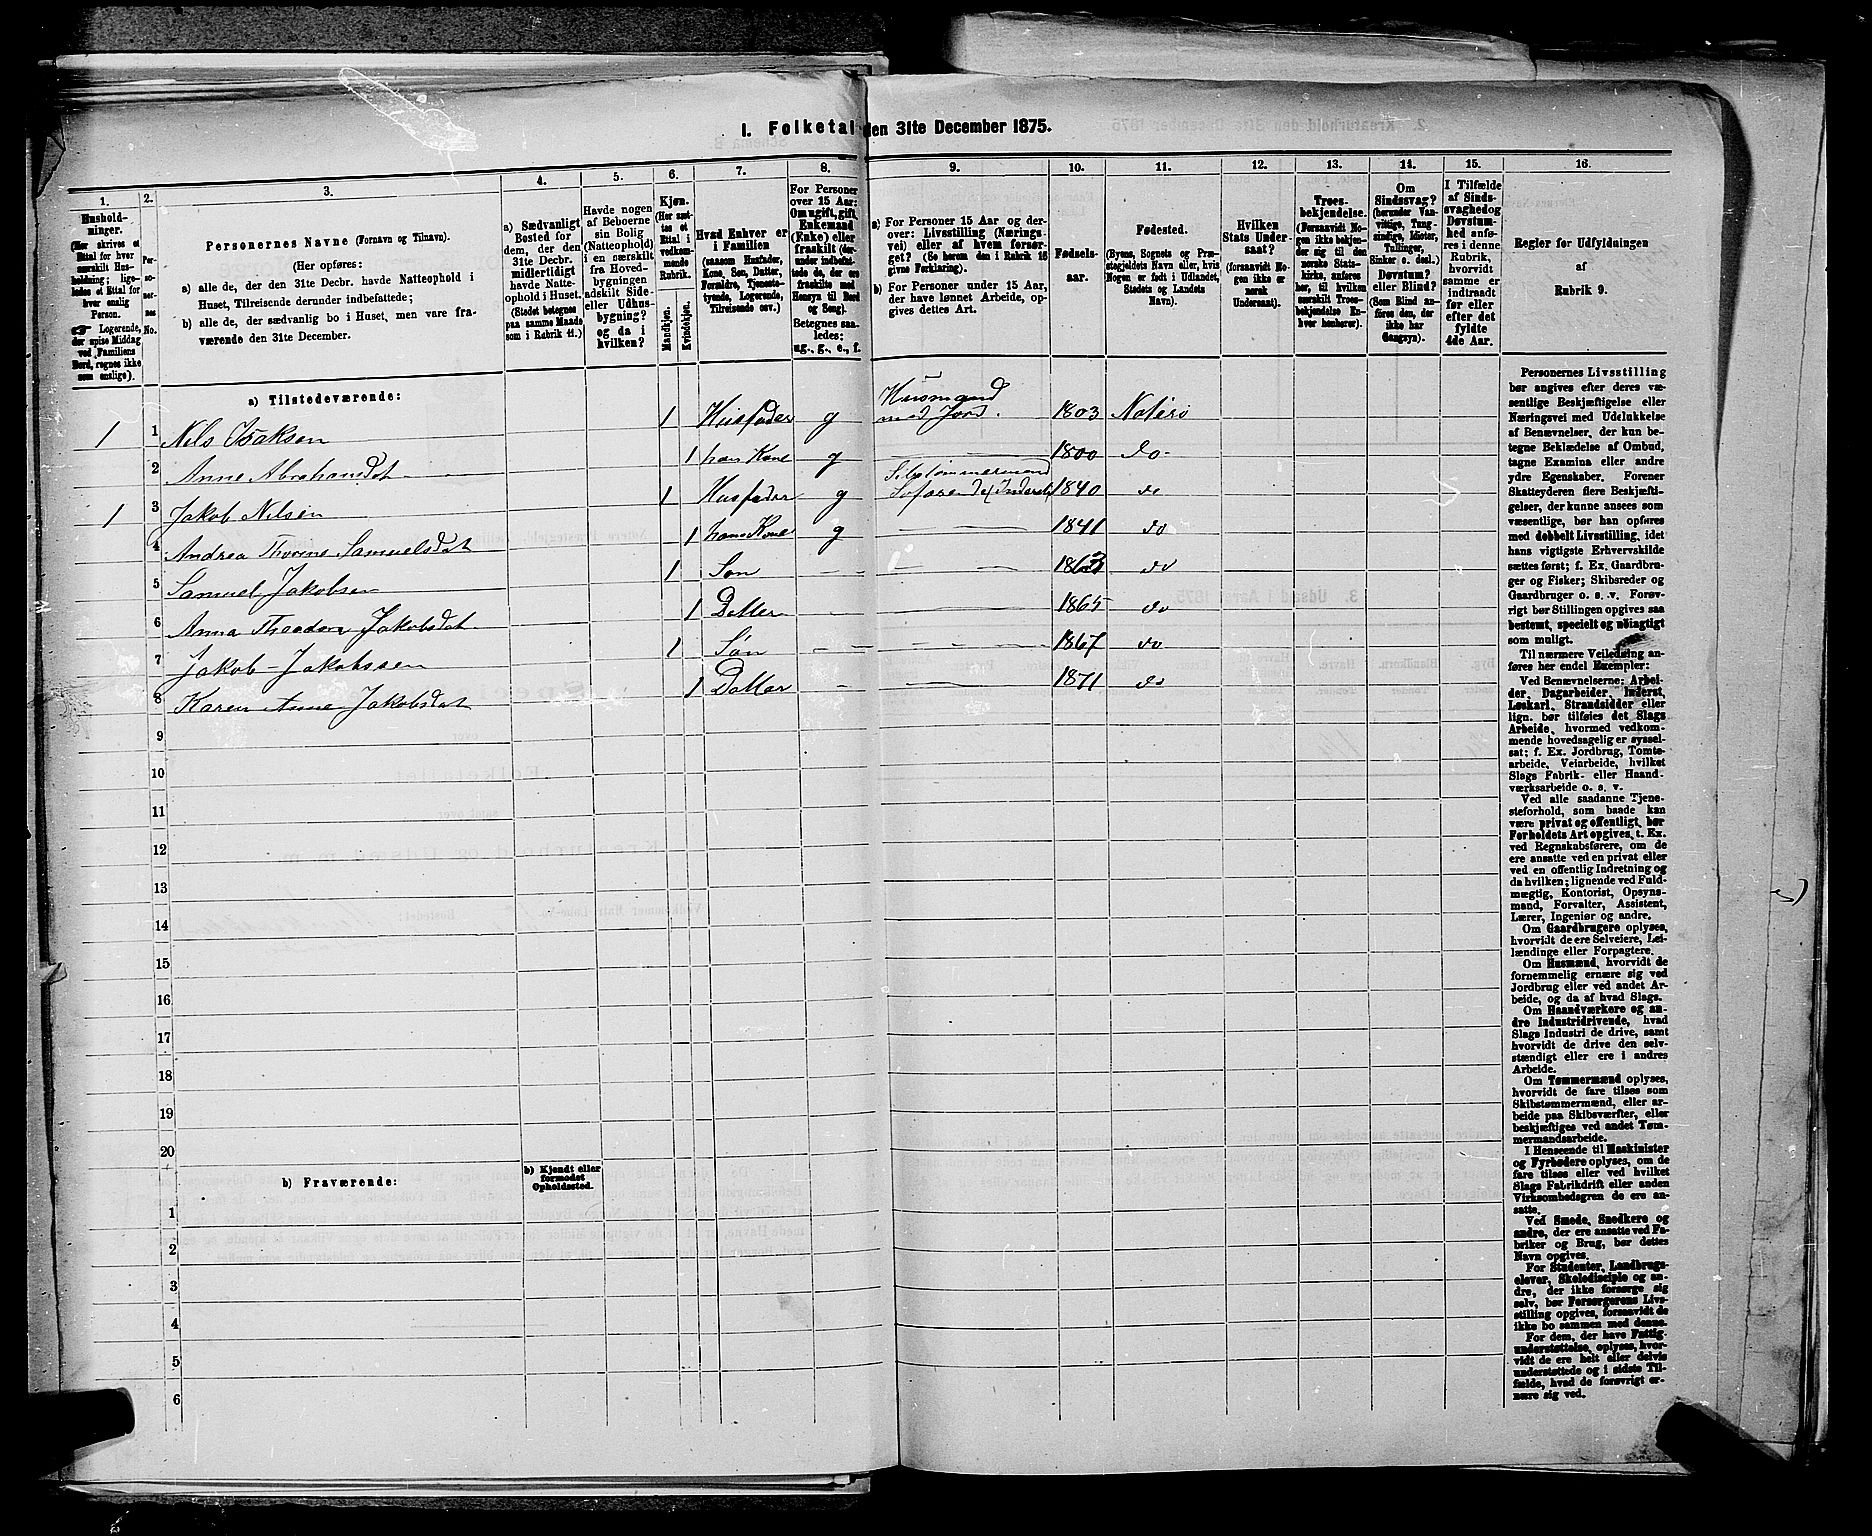 1. Folketal den 31te December 1875.
1.
Hushold-
ninger.
(Her skrives et
Ettal for hver
særskilt Hus-
holdning; lige-
ledes et Ettal for
hver enslig
Person.
☛ Logerende,
der spise Middag
ved Familiens
Bord, regnes ikke
som enslige).
2.
Per-
so-
ner-
nes
No.
3.
Personernes Navne (Fornavn og Tilnavn).
(Her opføres:
a) alle de, der den 31te Decbr. havde Natteophold i
Huset, Tilreisende derunder indbefattede;
b) alle de, der sædvanlig bo i Huset, men vare fra-
værende den 31te December.
4.
a) Sædvanligt
Bosted for
dem, der den
31te Decbr.
midlertidigt
havde Natte-
ophold i Huset.
(Stedet betegnes
paa samme Maade
som i Rubrik 11.)
5.
Havde nogen
af Beboerne
sin Bolig
(Natteophold)
i en særskilt
fra Hoved-
bygningen
adskilt Side-
eller Udhus-
bygning?
og da i
hvilken?
6.
Kjøn.
(Her sæt-
tes et
Ettal i
vedkom-
mende
Rubrik.
Mandkjøn.
Kvindekjøn.
7.
Hvad Enhver er
i Familien
(saasom Husfader,
Kone, Søn, Datter,
Forældre, Tjeneste-
tyende, Logerende,
Tilreisende osv.)
8.
For Personer
over 15 Aar:
Om ugift, gift,
Enkemand
(Enke) eller
fraskilt (der-
under indbefat-
tede de, der ere
fraskilte med
Hensyn til Bord
og Seng).
Betegnes saa-
ledes:
ug., g., e., f.
9.
a) For Personer 15 Aar og der-
over: Livsstilling (Nærings-
vei) eller af hvem forsør-
get? (Se herom den i Rubrik 16
givne Forklaring).
b) For Personer under 15 Aar,
der have lønnet Arbeide, op-
gives dettes Art.
10.
Fødsels-
aar.
11.
Fødested.
(Byens, Sognets og Præ-
stegjeldets Navn eller, hvis
Nogen er født i Udlandet,
Stedets og Landets
Navn).
12.
Hvilken
Stats Under-
saat?
(forsaavidt No-
gen ikke er
norsk
Undersaat).
13.
Troes-
bekjendelse.
(Forsaavidt No-
gen ikke bekjen-
der sig til den
norske Stats-
kirke, anføres
her, til hvilken
særskilt Troes-
bekjendelse En-
hver henhører).
14.
Om
Sindssvag?
(herunder Van-
vittige, Tung-
sindige, Idioter,
Tullinger,
Sinker o. desl.)
Døvstum?
eller Blind?
(Som Blind an-
føres den, der
ikke har
Gangsyn).
15.
I Tilfælde
af Sinds-
svaghed og
Døvstum-
hed anfø-
res i denne
Rubrik,
hvorvidt
samme er
indtraadt
før eller
efter det
fyldte
4de Aar.
16.
Regler for Udfyldningen
af
Rubrik 9.
a) Tilstedeværende:
Husmand
1 1 Nils Isaksen 1 Husfader g med Jord. 1803 Nøterø
2 Anne Abrahamsdat 1 hans Kone g 1800 do
Skibstømmermand
1 3 Jakob Nilsen 1 Husfader g Søfarende (Inderst) 1840 do
4 Andrea Thorine Samuelsdat 1 hans Kone g 1841 do
5 Samuel Jakobsen 1 Søn 1863 do
6 Anna Theodora Jakobsdat 1 Datter 1865 do
7 Jakob Jakobssen 1 Søn 1867 do
8 Karen Anne Jakobsdat 1 Datter 1871 do
9
10
11
12
13
14
15
16
17
18
19
20
b) Fraværende:
b) Kjendt eller
formodet
Opholdssted.
1
2
3
4
5
6
Personernes Livsstilling
bør angives efter deres væ-
sentlige Beskjæftigelse eller
Næringsvei med Udelukkelse
af Benævnelser, der kun be-
tegne Beklædelse af Ombud,
tagne Examina eller andre
ydre Egenskaber. Forener
Skatteyderen flere Beskjæfti-
gelser, der kunne ansees som
væsentlige, bør han opføres
med dobbelt Livsstilling, idet
hans vigtigste Erhvervskilde
sættes først; f. Ex. Gaardbru-
ger og Fisker; Skibsreder og
Gaardbruger o. s. v. Forøv-
rigt bør Stillingen opgives saa
bestemt, specielt og nøiagtigt
som muligt.
Til nærmere Veiledning an-
føres her endel Exempler:
Ved Benævnelserne: Arbei-
der, Dagarbeider, Inderst,
Løskarl, Strandsidder eller
lign. bør tilføies det Slags
Arbeide, hvormed vedkom-
mende hovedsagelig er syssel-
sat; f. Ex. Jordbrug, Tomte-
arbeide, Veiarbeide, hvilket
Slags Fabrik- eller Haand-
værksarbeide o. s. v.
Ved alle saadanne Tjene-
steforhold, som baade kan
være privat og offentligt, bør
Forholdets Art opgives, t. Ex.
ved Regnskabsførere, om de
ere ansatte ved en privat eller
ved en offentlig Indretning og
da hvilken; lignende ved Fuld-
mægtig, Kontorist, Opsyns-
mand, Forvalter, Assistent,
Lærer, Ingeniør og andre.
Om Gaardbrugere oplyses,
hvorvidt de ere Selveiere, Lei-
lændinge eller Forpagtere.
Om Husmænd, hvorvidt de
fornemmelig ernære sig ved
Jordbrug eller ved andet Ar-
beide, og da af hvad Slags.
Om Haandværkere og an-
dre Industridrivende, hvad
Slags Industri de drive, samt
hvorvidt de drive den selv-
stændigt eller ere i andres
Arbeide.
Om Tømmermænd oplyses,
hvorvidt de fare tilses som
Skibstømmermænd, eller ar-
beide paa Skibsværfter, eller
beskjæftiges ved andet Tøm-
mermandsarbeide.
I Henseende til Maskinister
og Fyrbødere oplyses, om de
fare tilses eller ved hvilket
Slags Fabrikdrift eller anden
Virksomhedsgren de ere an-
satte.
Ved Smede, Snedkere og
andre, der ere ansatte ved Fa-
briker og Brug, bør dettes
Navn opgives.
For Studenter, Landbrugs-
elever, Skoledisciple og an-
dre, der ikke forsørge sig
selv, bør Forsørgerens Livs-
stilling opgives, forsaavidt de
ikke bo sammen med denne.
For dem, der have Fattig-
understøttelse, oplyses, hvor-
vidt de ere helt eller delvis
understøttede og i sidste Til-
fælde, hvad de forøvrigt er-
nære sig ved.